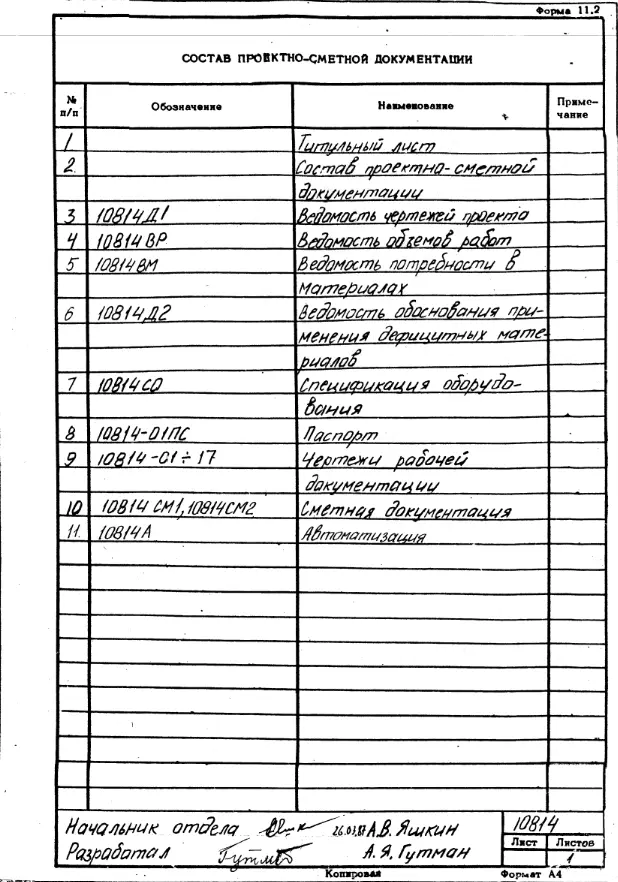 Форма 11.2
СОСТАВ ПРОЕКТНО-СМЕТНОЙ ДОКУМЕНТАЦИИ
№ п/п Обозначение Наименование Приме-
чание
1 Титульный лист
2. Состав проектно-сметной
документации
3 10814Д1 Ведомость чертежей проекта
4 10814ВР Ведомость объемов работ
5 10814ВМ Ведомость потребности в
материалах
6 10814Д2 Ведомость обоснования при-
менения дефицитных мате-
риалов
7 10814СО Спецификация оборудо-
вания
8 10814-01ПС Паспорт
9 10814-01÷17 Чертежи рабочей
документации
10 10814 СМ1, 10814СМ2 Сметная документация
11. 10814А Автоматизация
Начальник отдела 26.03.87 А.В. Яшкин 10814
Лист Листов
Разработал Гутман А.Я. Гутман 1
Копировал Формат А4